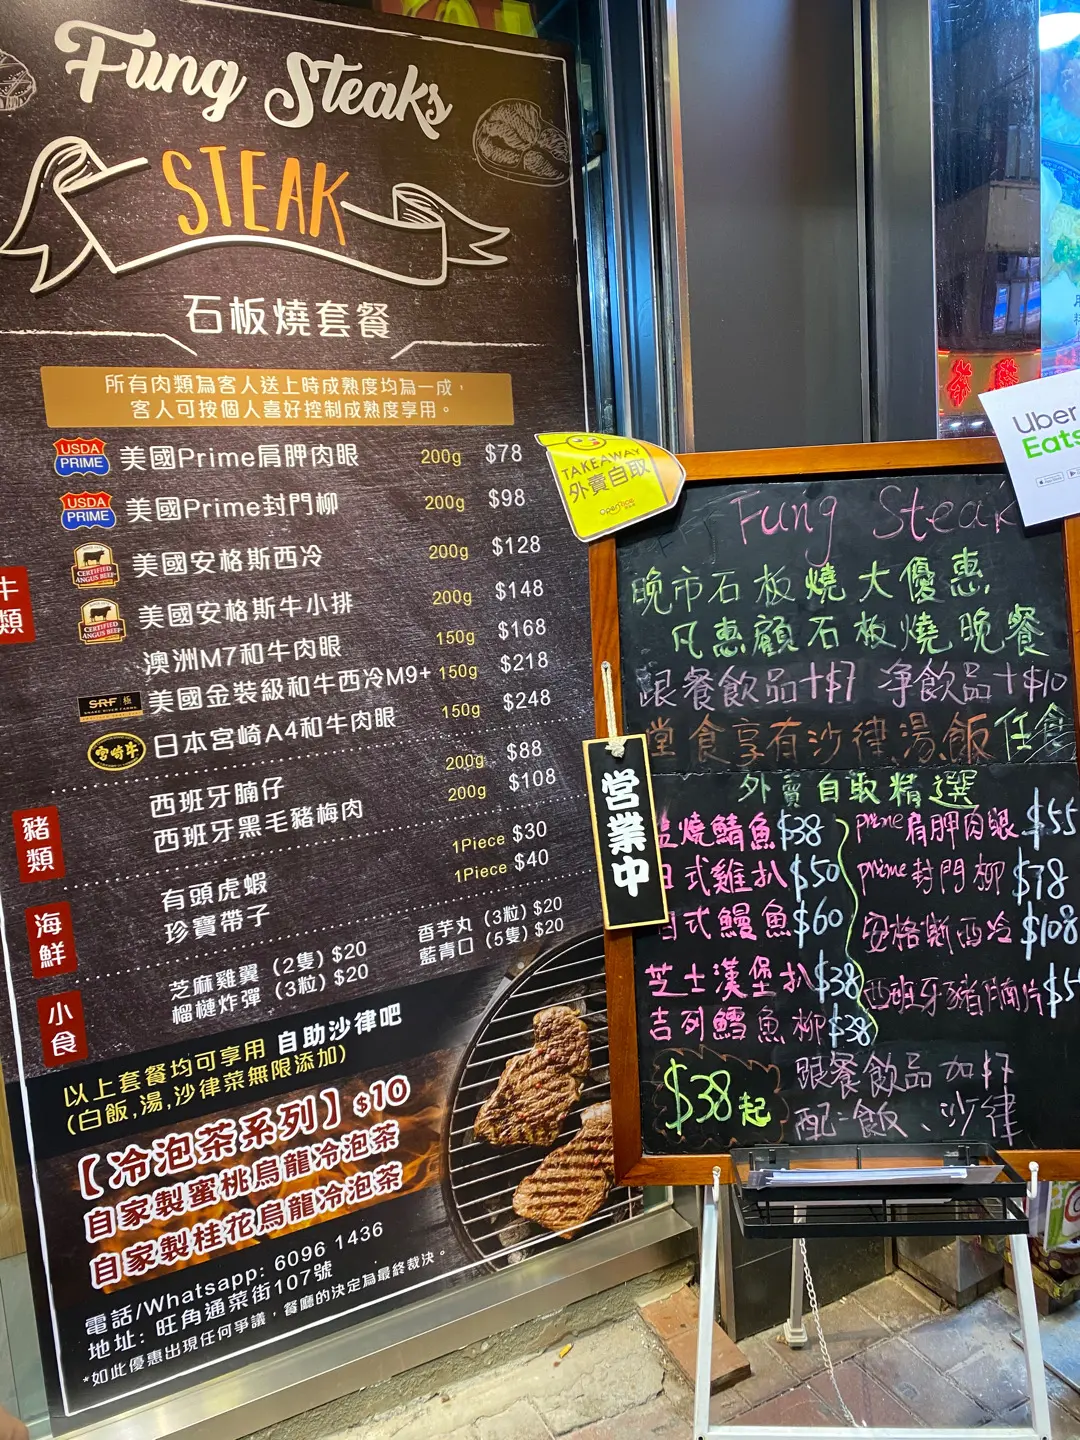 Fung Steaks
STEAK
石板燒套餐
所有肉類為客人送上時成熟度均為一成，
客人可按個人喜好控制成熟度享用。
牛類
USDA PRIME 美國Prime肩胛肉眼 200g $78
USDA PRIME 美國Prime封門柳 200g $98
CERTIFIED ANGUS BEEF 美國安格斯西冷 200g $128
CERTIFIED ANGUS BEEF 美國安格斯牛小排 200g $148
澳洲M7和牛肉眼 150g $168
SRF 極 美國金裝級和牛西冷M9+ 150g $218
宮崎牛 日本宮崎A4和牛肉眼 150g $248
豬類
西班牙腩仔 200g $88
西班牙黑毛豬梅肉 200g $108
海鮮
有頭虎蝦 1Piece $30
珍寶帶子 1Piece $40
小食
芝麻雞翼（2隻）$20 香芋丸（3粒）$20
榴槤炸彈（3粒）$20 藍青口（5隻）$20
以上套餐均可享用 自助沙律吧
(白飯,湯,沙律菜無限添加)
【冷泡茶系列】$10
自家製蜜桃烏龍冷泡茶
自家製桂花烏龍冷泡茶
電話/Whatsapp: 6096 1436
地址: 旺角通菜街107號
*如此優惠出現任何爭議，餐廳的決定為最終裁決。
TAKEAWAY
外賣自取
OpenRice
Uber
Eats
営業中
Fung Steak
晚市石板燒大優惠
凡惠顧石板燒晚餐
跟餐飲品+$7 淨飲品+$10
堂食享有沙律湯飯任食
外賣自取精選
燒鯖魚$38 prime肩胛肉眼 $55
日式雞扒 $50 prime封門柳 $78
日式鰻魚 $60 安格斯西冷 $108
芝士漢堡扒 $38 西班牙豬腩片
吉列鱈魚柳 $38
$38起
跟餐飲品加$7
配:飯、沙律